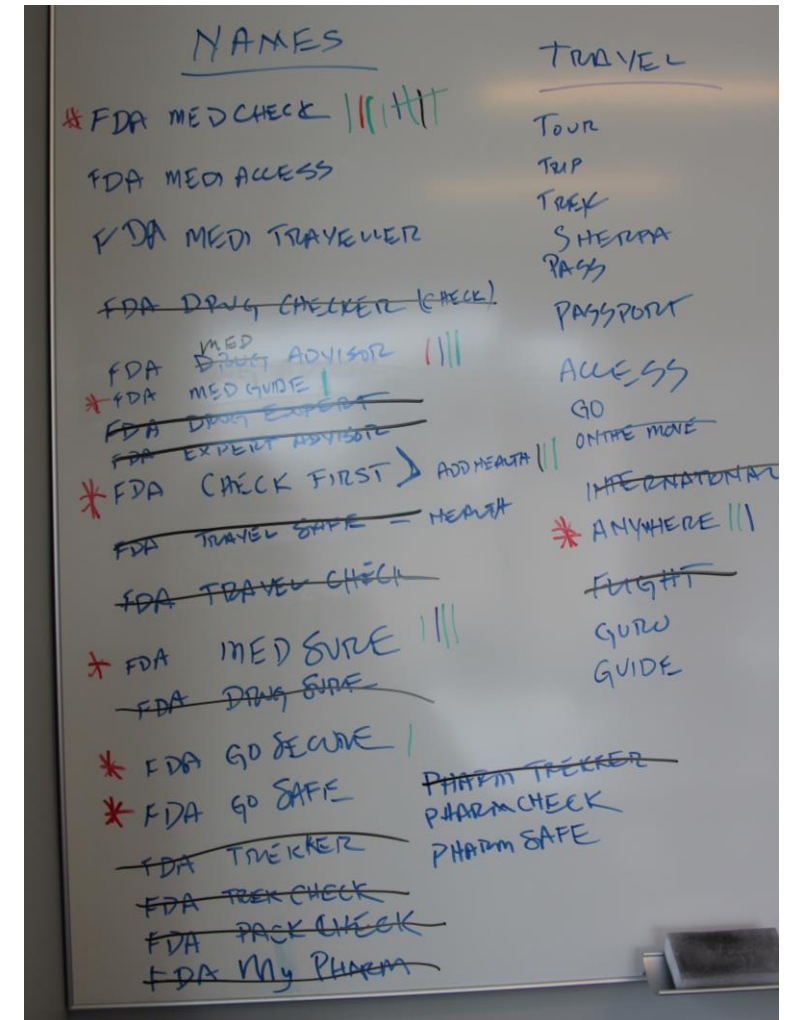 NAMES
* FDA MEDCHECK
FDA MEDI ACCESS
FDA MEDI TRAVELLER
FDA DRUG CHECKER (CHECK)
MED
FDA DRUG ADVISOR
* FDA MED GUIDE
FDA DRUG EXPERT
FDA EXPERT ADVISOR
* FDA CHECK FIRST > ADD HEALTH
FDA TRAVEL SAFE - HEALTH
FDA TRAVEL CHECK
* FDA MED SURE
FDA DRUG SURE
* FDA GO SECURE
* FDA GO SAFE
FDA TREKKER
FDA TREK CHECK
FDA PACK CHECK
FDA My PHARM
PHARM TREKKER
PHARMCHECK
PHARM SAFE
TRAVEL
TOUR
TRIP
TREK
SHERPA
PASS
PASSPORT
ACCESS
GO
ON THE MOVE
INTERNATIONAL
* ANYWHERE
FLIGHT
GURU
GUIDE